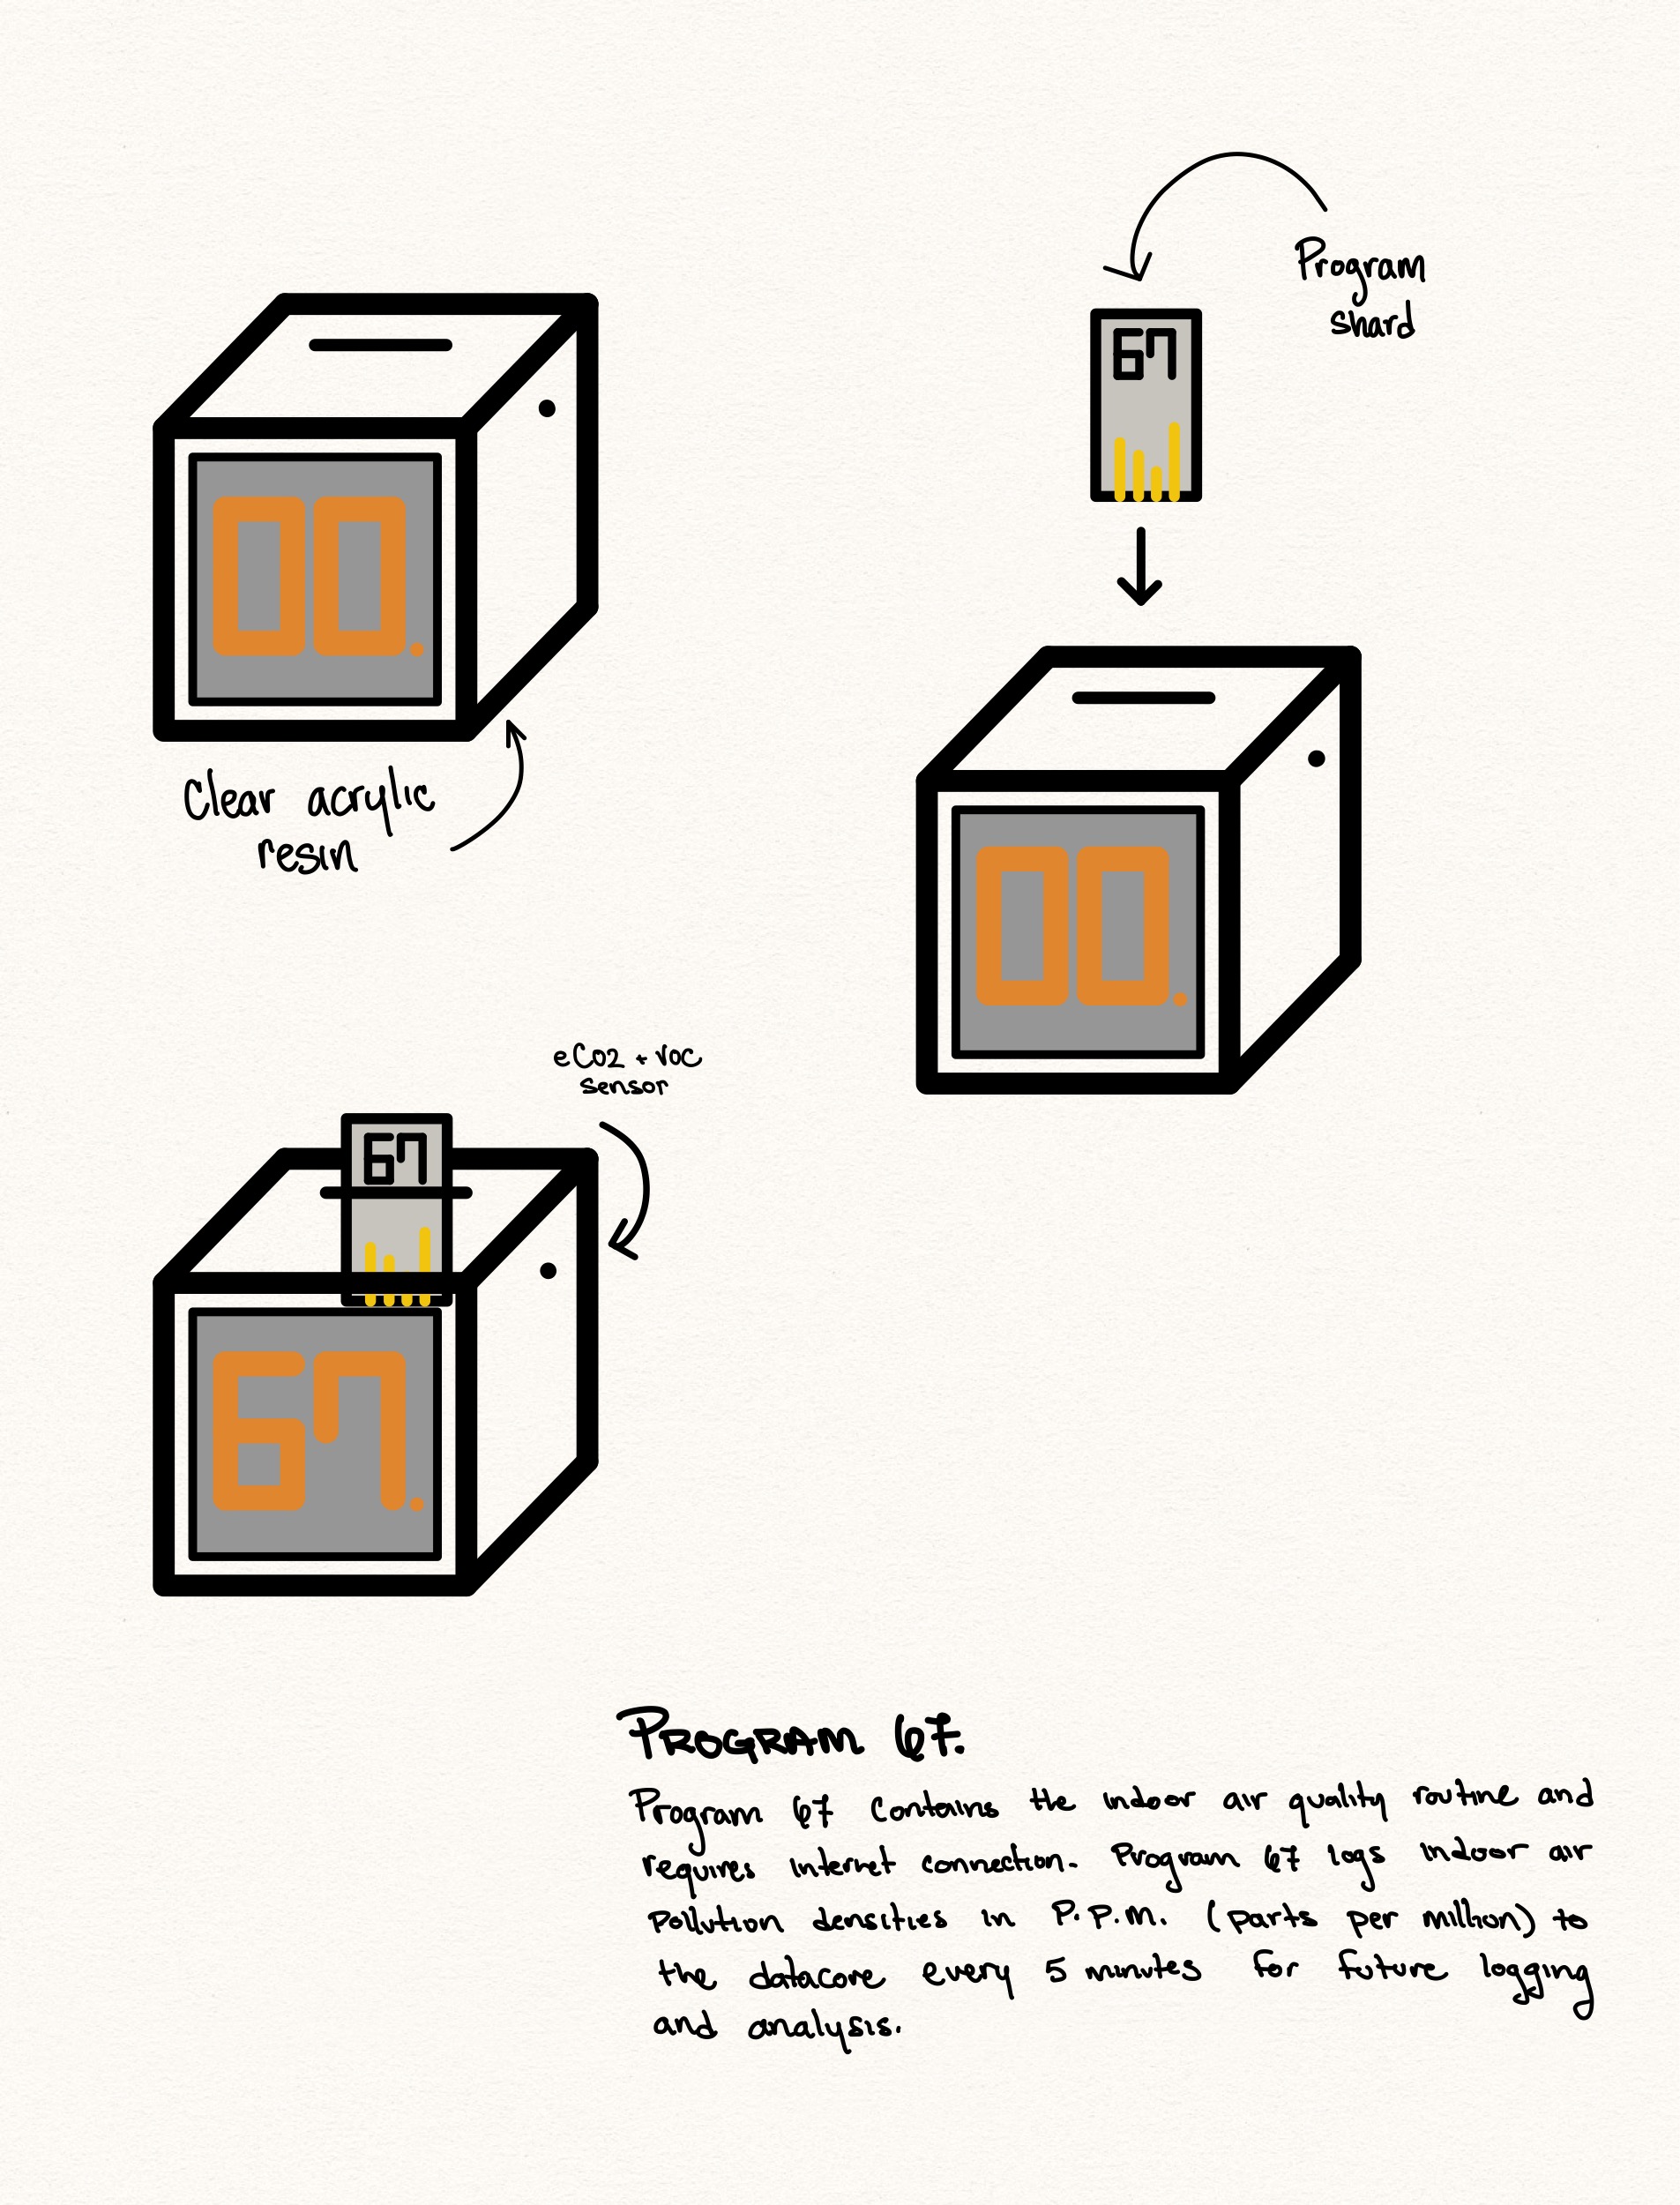 Program
shard
67
00.
Clear acrylic
resin
00.
eCO2 + VOC
sensor
67
67.
PROGRAM 67.
Program 67 contains the indoor air quality routine and
requires internet connection. Program 67 logs indoor air
pollution densities in P.P.M. (parts per million) to
the datacore every 5 minutes for future logging
and analysis.